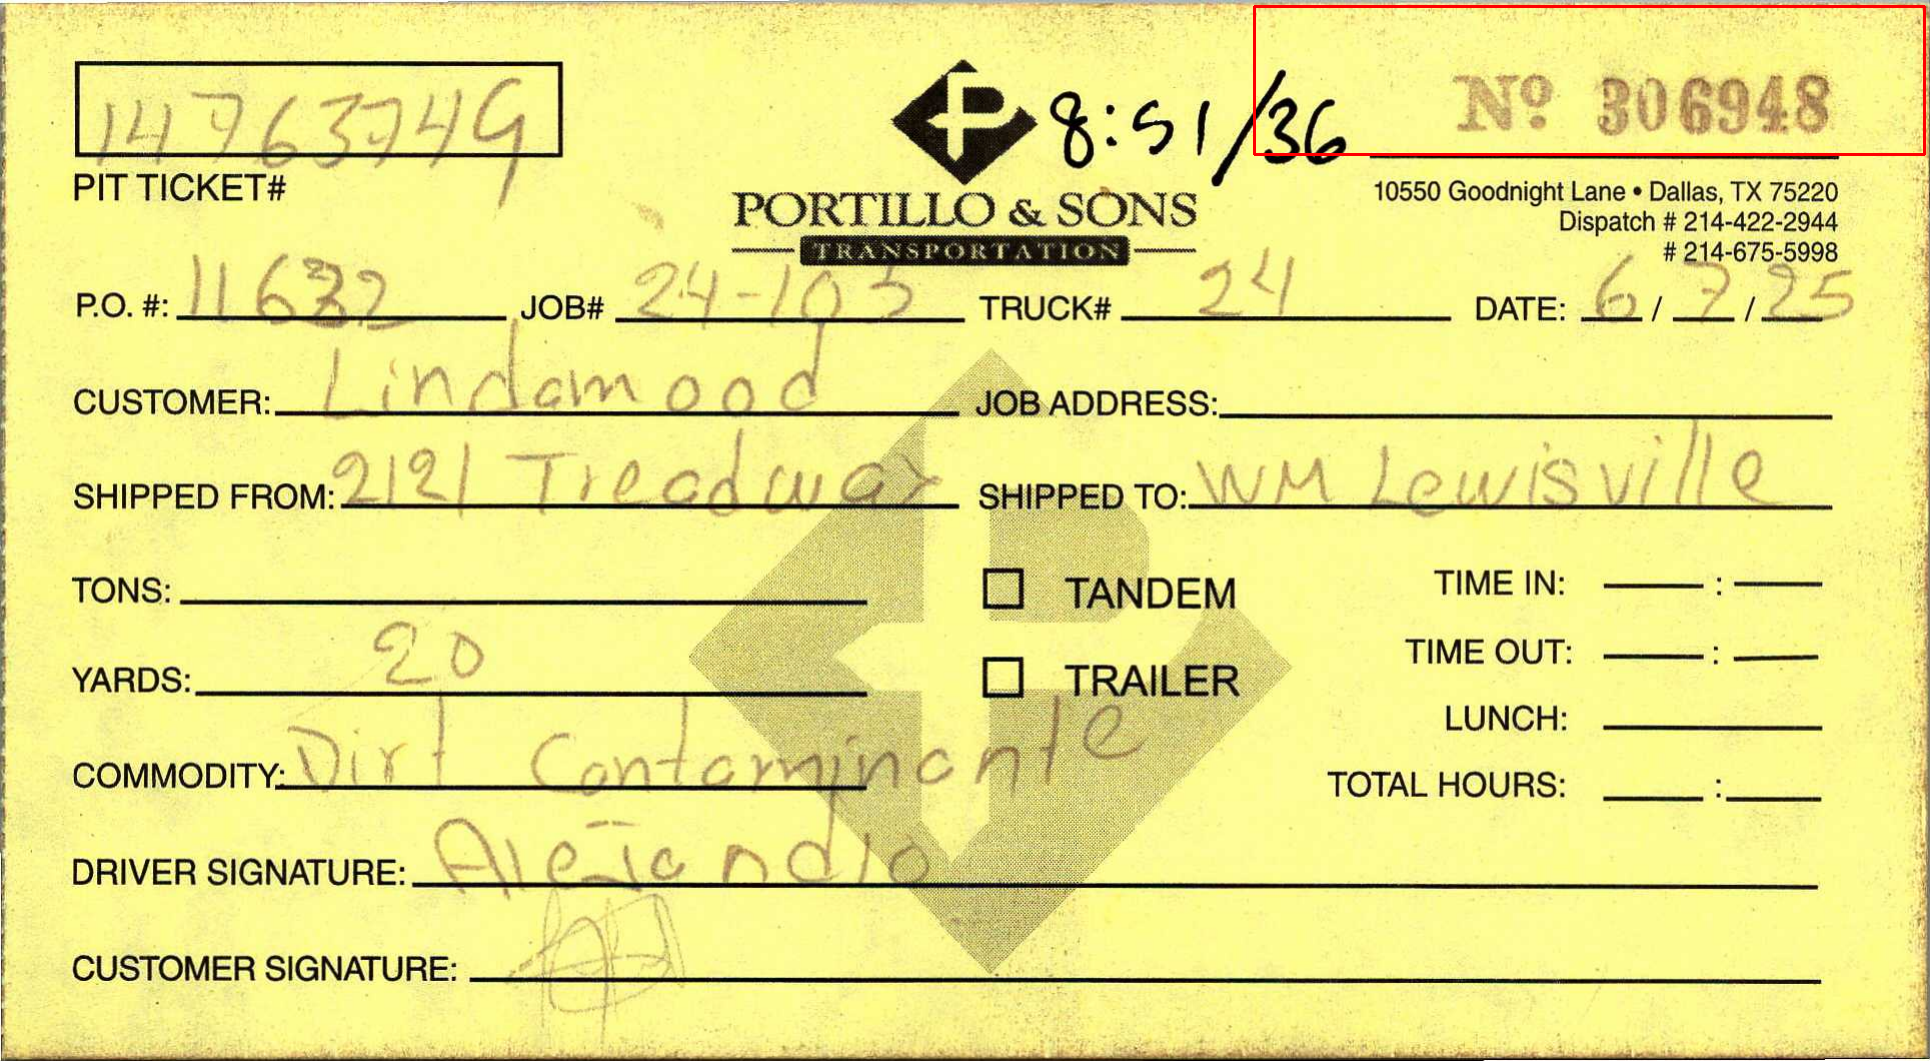 14763749
8:51/36
Nº 306948
PIT TICKET#
PORTILLO & SONS
TRANSPORTATION
10550 Goodnight Lane • Dallas, TX 75220
Dispatch # 214-422-2944
# 214-675-5998
P.O. #: 11632 JOB# 24-105 TRUCK# 24 DATE: 6/7/25
CUSTOMER: Lindamood JOB ADDRESS:
SHIPPED FROM: 2121 Treadway SHIPPED TO: WM Lewisville
TONS: TANDEM TIME IN: :
TIME OUT: :
YARDS: 20 TRAILER
LUNCH:
COMMODITY: Dirt Contaminante
TOTAL HOURS: :
DRIVER SIGNATURE: Alejandro
CUSTOMER SIGNATURE: